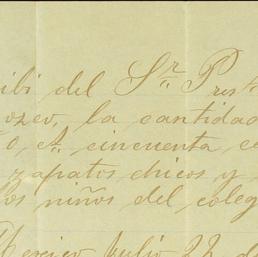 ibi del Sr. Prest
ozco, la cantidad
o, ct. cincuenta ce
zapatos chicos y
los niños del coleg
Mexico, Julio 22 d